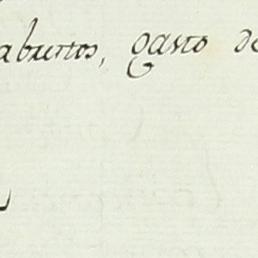 aburtos, gasto de